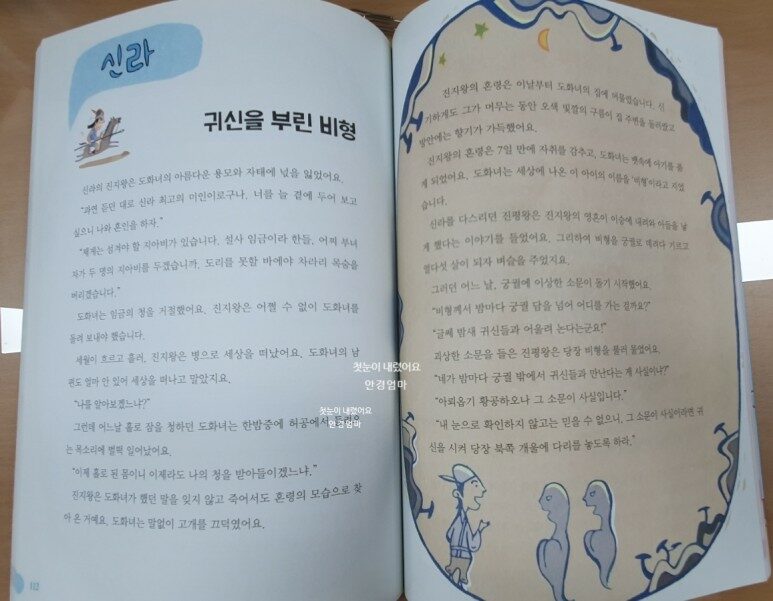 신라
귀신을 부린 비형
신라의 진지왕은 도화녀의 아름다운 용모와 자태에 넋을 잃었어요.
"과연 듣던 대로 신라 최고의 미인이로구나. 너를 늘 곁에 두어 보고
싶으니 나와 혼인을 하자."
"제게는 섬겨야 할 지아비가 있습니다. 설사 임금이라 한들, 어찌 부녀
자가 두 명의 지아비를 두겠습니까. 도리를 못할 바에야 차라리 목숨을
버리겠습니다."
도화녀는 임금의 청을 거절했어요. 진지왕은 어쩔 수 없이 도화녀를
돌려 보내야 했습니다.
세월이 흐르고 흘러, 진지왕은 병으로 세상을 떠났어요. 도화녀의 남
편도 얼마 안 있어 세상을 떠나고 말았지요.
"나를 알아보겠느냐?"
그런데 어느날 홀로 잠을 청하던 도화녀는 한밤중에 허공에서 들려오
는 목소리에 벌떡 일어났어요.
"이제 홀로 된 몸이니 이제라도 나의 청을 받아들이겠느냐."
진지왕은 도화녀가 했던 말을 잊지 않고 죽어서도 혼령의 모습으로 찾
아 온 거예요. 도화녀는 말없이 고개를 끄덕였어요.
112
진지왕의 혼령은 이날부터 도화녀의 집에 머물렀습니다. 신
기하게도 그가 머무는 동안 오색 빛깔의 구름이 집 주변을 둘러쌌고
방안에는 향기가 가득했어요.
진지왕의 혼령은 7일 만에 자취를 감추고, 도화녀는 뱃속에 아기를 품
게 되었어요. 도화녀는 세상에 나온 이 아이의 이름을 '비형'이라고 지었
습니다.
신라를 다스리던 진평왕은 진지왕의 영혼이 이승에 내려와 아들을 낳
게 했다는 이야기를 들었어요. 그리하여 비형을 궁궐로 데려다 기르고
열다섯 살이 되자 벼슬을 주었지요.
그러던 어느 날, 궁궐에 이상한 소문이 돌기 시작했어요.
"비형께서 밤마다 궁궐 담을 넘어 어디를 가는 걸까요?"
"글쎄 밤새 귀신들과 어울려 논다는군요!"
괴상한 소문을 들은 진평왕은 당장 비형을 불러 물었어요.
"네가 밤마다 궁궐 밖에서 귀신들과 만난다는 게 사실이냐?"
"아뢰옵기 황공하오나 그 소문이 사실입니다."
"내 눈으로 확인하지 않고는 믿을 수 없으니, 그 소문이 사실이라면 귀
신을 시켜 당장 북쪽 개울에 다리를 놓도록 하라."
첫눈이 내렸어요
안경엄마
첫눈이 내렸어요
안경엄마